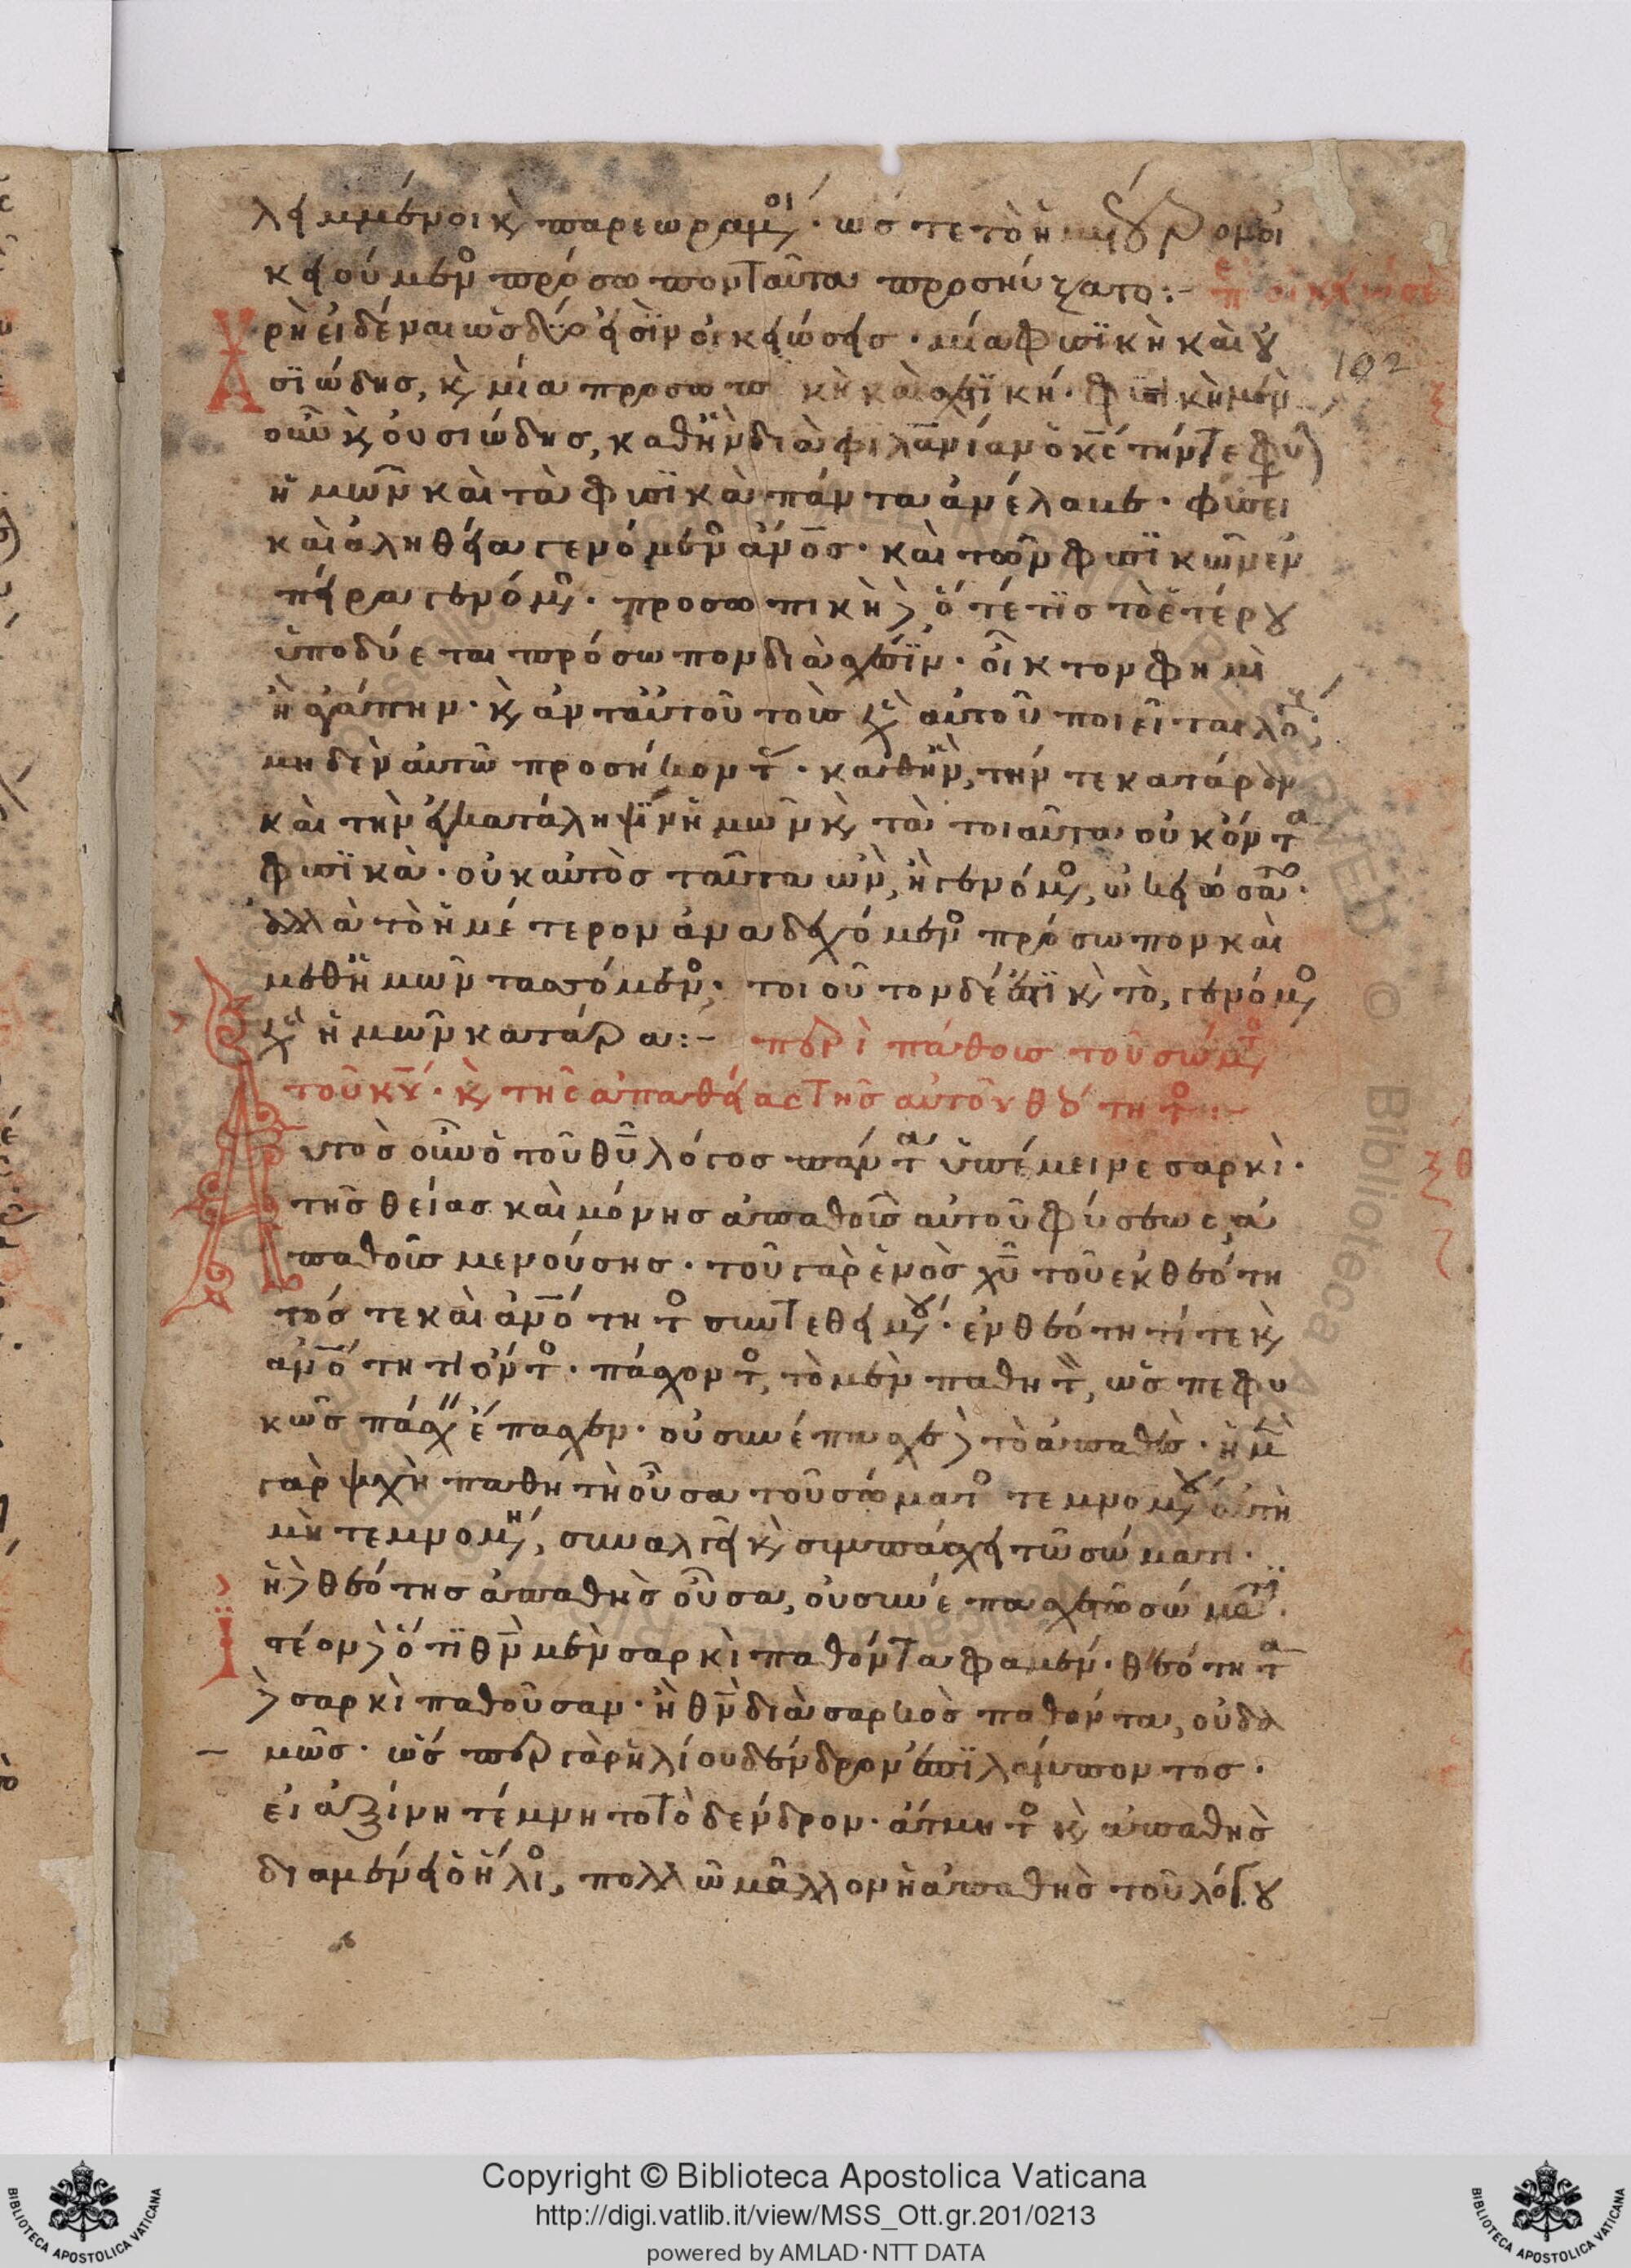 λειμμένοι κ παρεωραμοι· ὥστε τὸ ἡμέτερον οι
κειούμενο πρόσωπον ταῦτα προσηύξατο:- πε οικειώσε
Χρὴ εἰδέναι ὡς δύο εἰσὶν οἰκειώσεις· μία φυσϊκὴ καὶ ȣ
σϊώδης, κ μία προσωπικὴ καὶ σχετϊκή· φυσϊκὴ μὲν
οὖν κ οὐσιώδης, καθἣν διὰ φιλανίαν ὁ κς τήν τε φύ
ἡμῶν καὶ τὰ φυσϊκὰ πάντα ἀνέλαβε· φύσει
καὶ ἀληθεία γενόμενο ἄνος· καὶ τῶν φυσϊκῶν ἐν
πείρα γενόμ· προσωπικὴ δὲ, ὅτέ τϊς τὸ ἑτέρȣ
ὑποδύεται πρόσωπον διὰ σχέσϊν· οἶκτον φημὶ
ἢ ἀγάπην· κ ἀνταὐτοῦ τοὺς ὑπὲρ αὐτοῦ ποιεῖται λό
μηδὲν αὐτῶ προσήκοντ· καθἣν, τήν τε κατάραν
καὶ τὴν ἐγκατάληψϊν ἡμῶν κ τὰ τοιαῦτα οὐκ ὄντα
φυσϊκὰ· οὐκ αὐτὸς ταῦτα ὢν, ἢ γενόμ, ὠκειώσατο·
ἀλλὰ τὸ ἡμέτερον ἀναδεχόμενο πρόσωπον καὶ
μεθἡμῶν τασσόμενο· τοιοῦτον δέ ἐστϊ κ τὸ, γενόμο
ὑπὲρ ἡμῶν κατάρα:- περὶ πάθους τοῦ σώμτο
τοῦ κυ· κ τῆς ἀπαθείας τῆς αὐτοῦ θεότητο:-
Αὐτὸς οὖν ὁ τοῦ θυ λόγος πάντα ὑπέμεινε σαρκὶ·
τῆς θείας καὶ μόνης ἀπαθοῦς αὐτοῦ φύσεως, ἀ
παθοῦς μενούσης· τοῦ γὰρ ἑνὸς χυ τοῦ ἐκ θεότη
τός τε καὶ ἀνότητο συντεθειμȣ· ἐν θεότητί τε κ
ἀνότητι ὄντο· πάσχοντο, τὸ μὲν παθητὸ, ὡς πεφυ
κὼς πάσχ ἔπασχεν· οὐ συνέπασχε δὲ τὸ ἀπαθὲς· ἡ μὲν
γὰρ ψχὴ παθητὴ οὖσα τοῦ σώματο τεμνομȣ αὐτὴ
μὴ τεμνομη, συναλγεῖ κ συμπάσχει τῶ σώματι·
ἡ δὲ θεότης ἀπαθὴς οὖσα, οὐ συνέπασχε τῶ σώματϊ·
Ϊτέον δὲ ὅτϊ θν μὲν σαρκὶ παθόντα φαμέν· θεότητα
δὲ σαρκὶ παθοῦσαν· ἢ θν διὰ σαρκὸς παθόντα, οὐδα
μῶς· ὥς περ γὰρ ἡλίου δένδρον ἐπϊλάμποντος·
εἰ ἀξίνη τέμνη το τὸ δένδρον· ἄτμητο κ ἀπαθὴς
διαμένει ὁ ἥλιο, πολλῶ μᾶλλον ἡ ἀπαθὴς τοῦ λόγȣ
102
ξθ
Copyright © Biblioteca Apostolica Vaticana
http://digi.vatlib.it/view/MSS_Ott.gr.201/0213
powered by AMLAD·NTT DATA
BIBLIOTECA APOSTOLICA VATICANA
BIBLIOTECA APOSTOLICA VATICANA